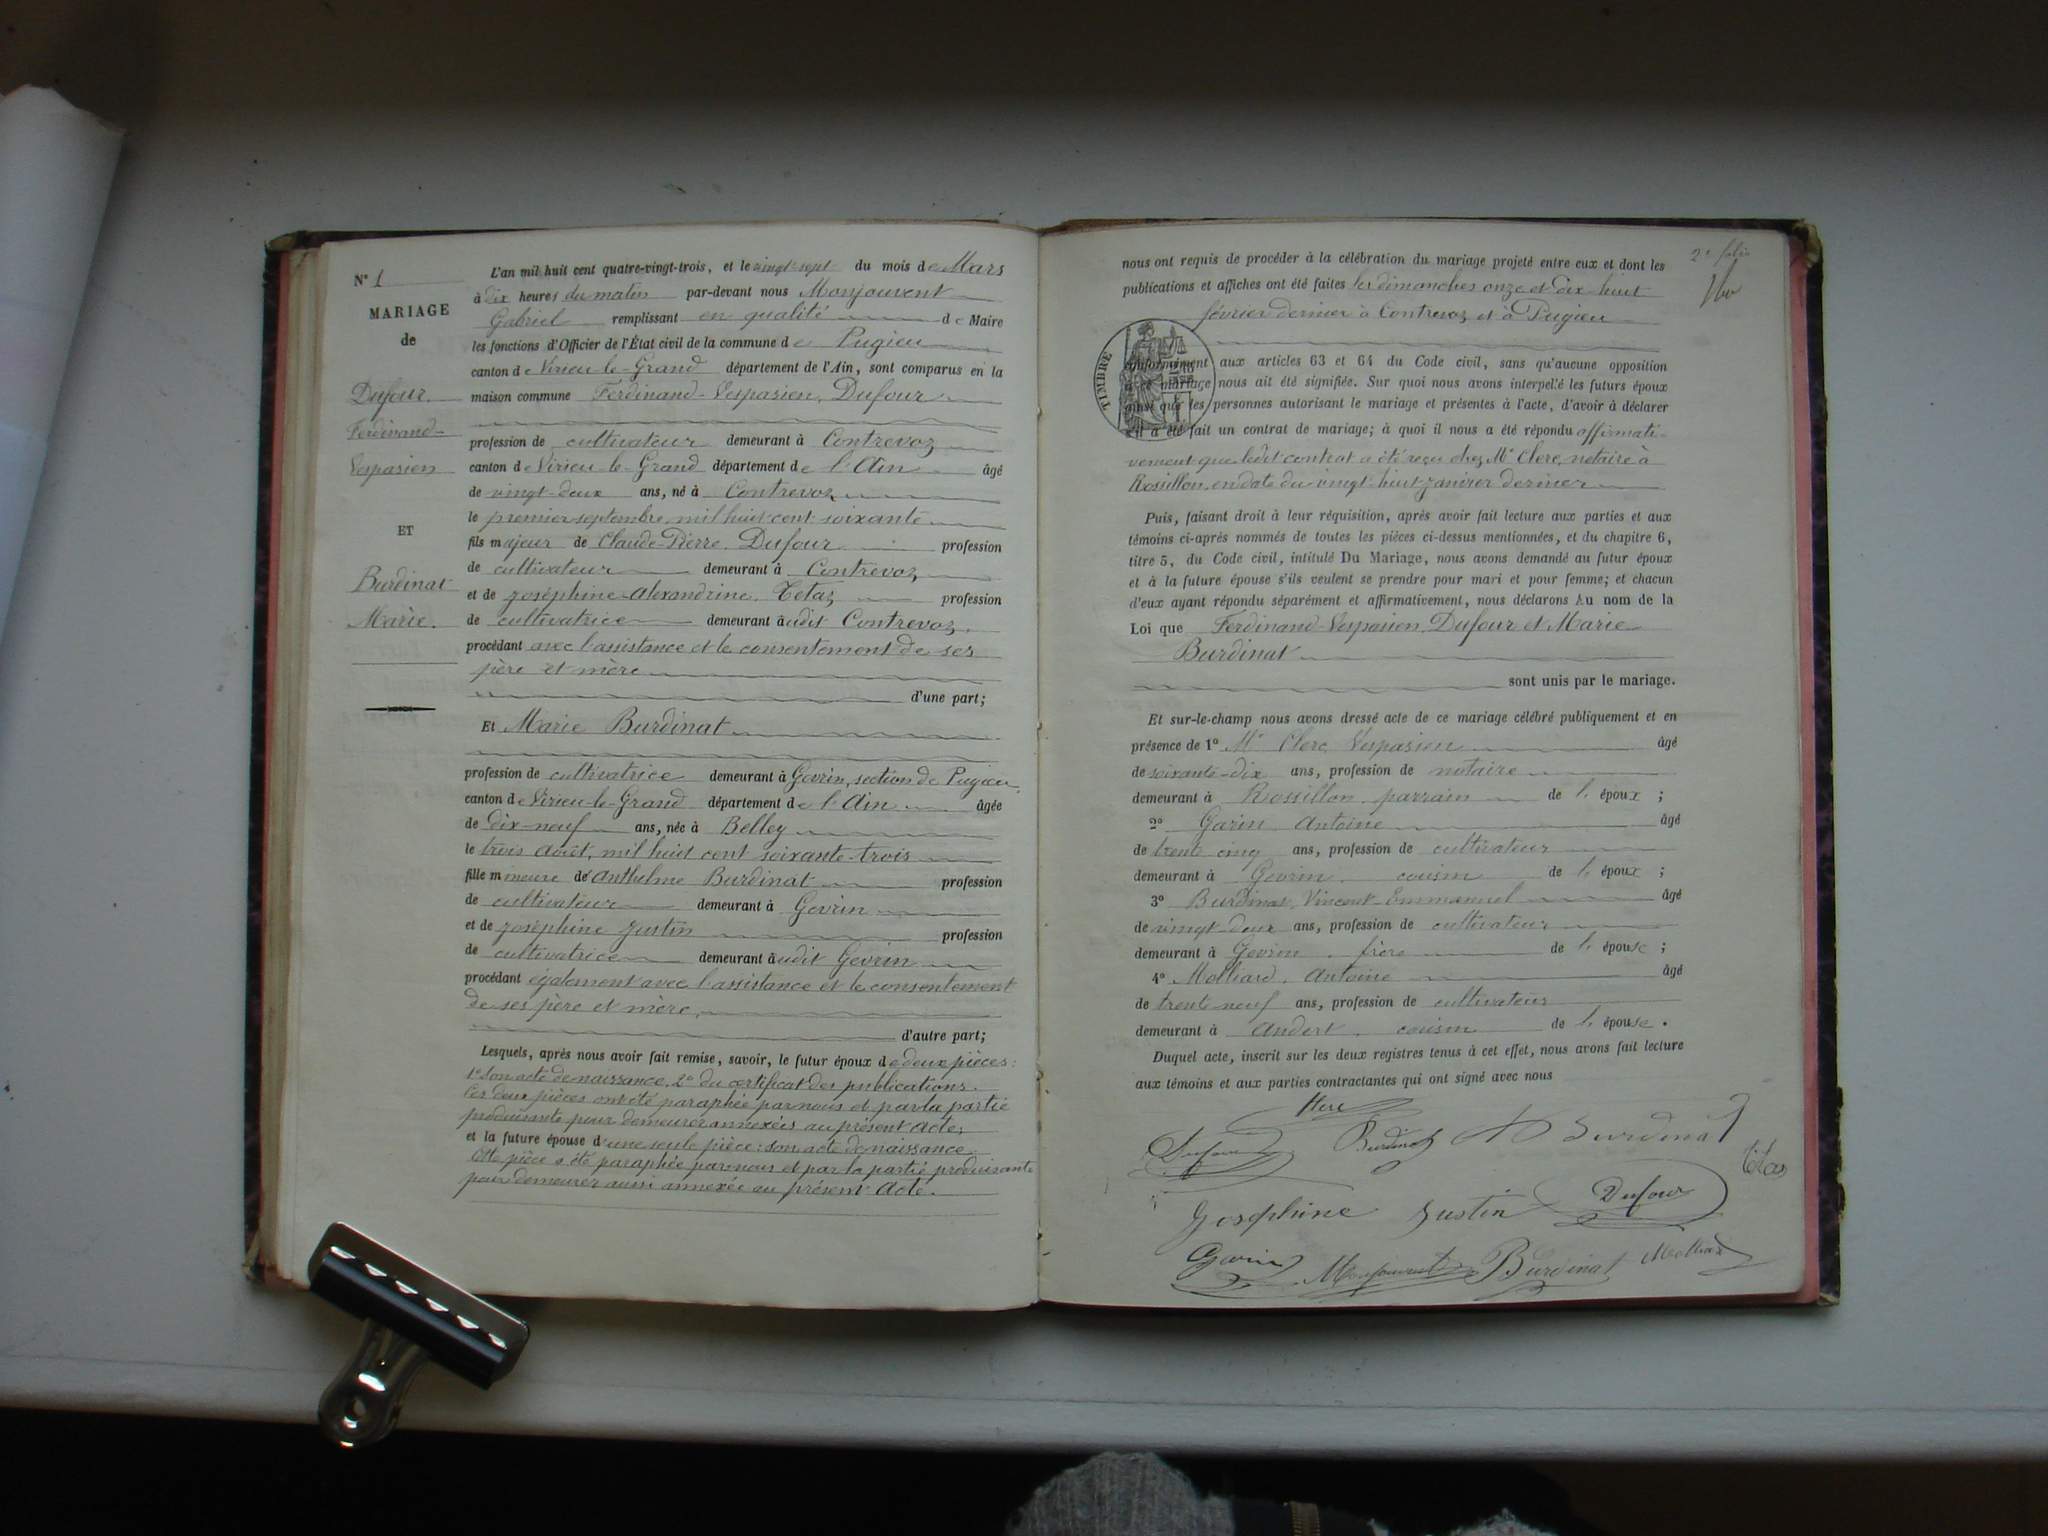 N° 1
MARIAGE
de
Dufour
Ferdinand-
Vespasien
ET
Burdinat
Marie.
L'an mil huit cent quatre-vingt-trois, et le vingt-sept du mois de Mars
à dix heures du matin par-devant nous Monjouvent
Gabriel remplissant en qualité de Maire
les fonctions d'Officier de l'État civil de la commune de Pugieu
canton de Virieu-le-Grand département de l'Ain, sont comparus en la
maison commune Ferdinand-Vespasien Dufour
profession de cultivateur demeurant à Contrevoz
canton de Virieu-le-Grand département de l'Ain âgé
de vingt-deux ans, né à Contrevoz
le premier septembre mil huit cent soixante
fils majeur de Claude-Pierre Dufour profession
de cultivateur demeurant à Contrevoz
et de Joséphine-Alexandrine Tetaz profession
de cultivatrice demeurant audit Contrevoz
procédant avec l'assistance et le consentement de ses
père et mère
d'une part;
Et Marie Burdinat
profession de cultivatrice demeurant à Gevrin, section de Pugieu
canton de Virieu-le-Grand département de l'Ain âgée
de dix-neuf ans, née à Belley
le trois Août, mil huit cent soixante-trois
fille mineure de Anthelme Burdinat profession
de cultivateur demeurant à Gevrin
et de Joséphine Justin profession
de cultivatrice demeurant audit Gevrin
procédant également avec l'assistance et le consentement
de ses père et mère
d'autre part;
Lesquels, après nous avoir fait remise, savoir, le futur époux de deux pièces:
1° son acte de naissance, 2° du certificat des publications.
Ces deux pièces ont été paraphée par nous et par la partie
produisante pour demeurer annexées au présent acte;
et la future épouse d'une seule pièce: son acte de naissance.
Cette pièce a été paraphée par nous et par la partie produisante
pour demeurer aussi annexée au présent Acte.
2e folio
nous ont requis de procéder à la célébration du mariage projeté entre eux et dont les
publications et affiches ont été faites les dimanches onze et dix-huit
février dernier à Contrevoz et à Pugieu
TIMBRE
conformément aux articles 63 et 64 du Code civil, sans qu'aucune opposition
à ce mariage nous ait été signifiée. Sur quoi nous avons interpelé les futurs époux
ainsi que les personnes autorisant le mariage et présentes à l'acte, d'avoir à déclarer
s'il a été fait un contrat de mariage; à quoi il nous a été répondu affirmati-
vement que ledit contrat a été reçu chez Me Clerc, notaire à
Rossillon, en date du vingt-huit janvier dernier
Puis, faisant droit à leur réquisition, après avoir fait lecture aux parties et aux
témoins ci-après nommés de toutes les pièces ci-dessus mentionnées, et du chapitre 6,
titre 5, du Code civil, intitulé Du Mariage, nous avons demandé au futur époux
et à la future épouse s'ils veulent se prendre pour mari et pour femme; et chacun
d'eux ayant répondu séparément et affirmativement, nous déclarons Au nom de la
Loi que Ferdinand-Vespasien Dufour et Marie
Burdinat
sont unis par le mariage.
Et sur-le-champ nous avons dressé acte de ce mariage célébré publiquement et en
présence de 1° Me Clerc Vespasien âgé
de soixante-dix ans, profession de notaire
demeurant à Rossillon, parrain de l'époux;
2° Garin Antoine âgé
de trente cinq ans, profession de cultivateur
demeurant à Gevrin, cousin de l'époux;
3° Burdinat, Vincent-Emmanuel âgé
de vingt-deux ans, profession de cultivateur
demeurant à Gevrin, frère de l'épouse;
4° Molliard, Antoine âgé
de trente neuf ans, profession de cultivateur
demeurant à Andert, cousin de l'épouse.
Duquel acte, inscrit sur les deux registres tenus à cet effet, nous avons fait lecture
aux témoins et aux parties contractantes qui ont signé avec nous
Clerc
Dufour Burdinat Burdinat
Tétaz
Josephine Justin Dufour
Garin Monjouvent Burdinat Molliard